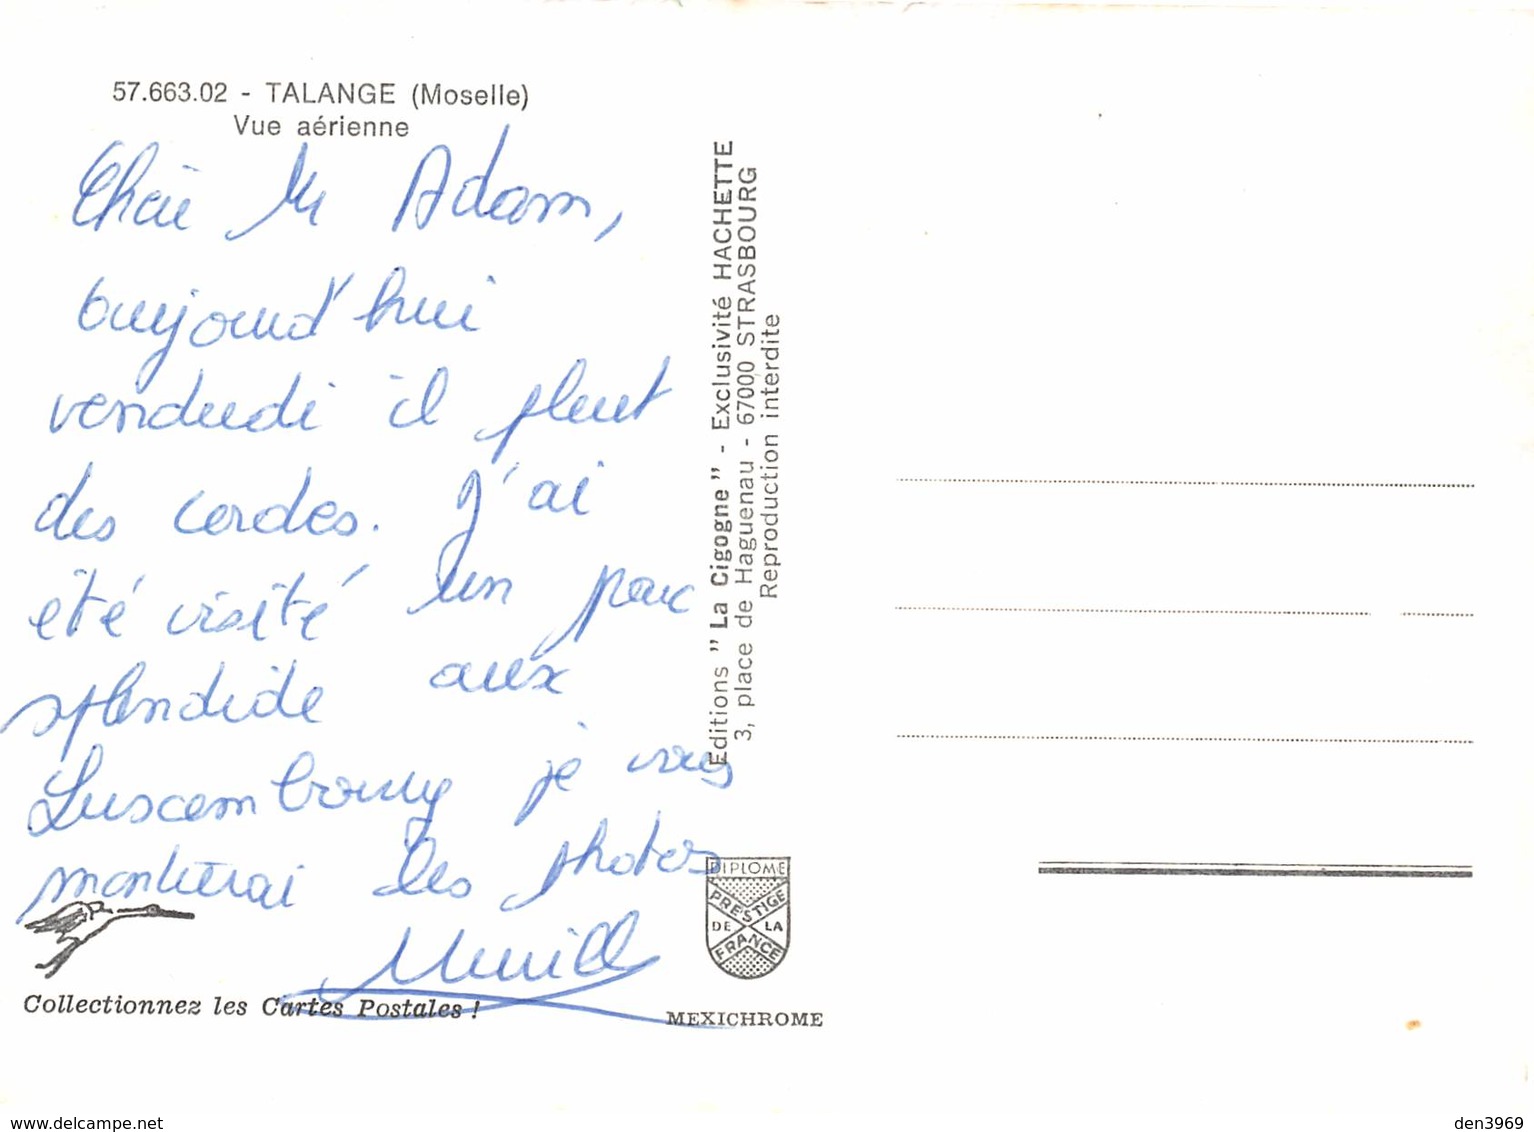 57.663.02 - TALANGE (Moselle)
Vue aérienne
Cher Mr Adam,
aujourd'hui
vendredi il pleut
des cordes. J'ai
été visité un parc
splendide aux
Luxembourg je vous
montrerai les photos
Collectionnez les Cartes Postales !
Editions " La Cigogne " - Exclusivité HACHETTE
3, place de Haguenau - 67000 STRASBOURG
Reproduction interdite
DIPLOME
PRESTIGE
DE LA
FRANCE
MEXICHROME
www.delcampe.net
den3969